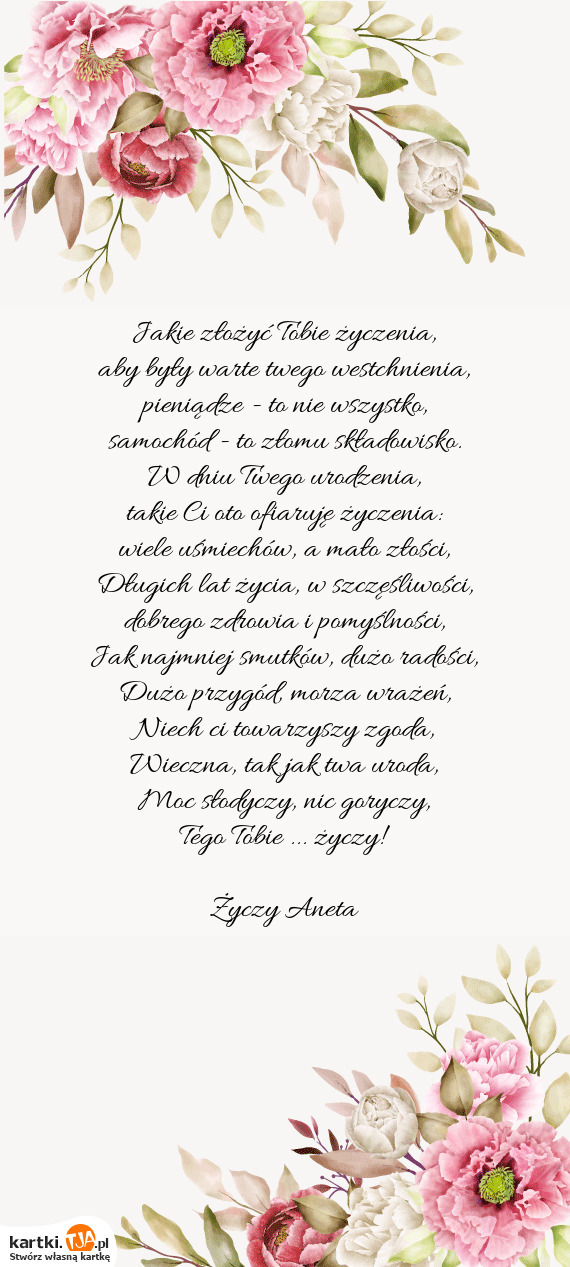 Jakie złożyć Tobie życzenia,
aby były warte twego westchnienia,
pieniądze - to nie wszystko,
samochód - to złomu składowisko.
W dniu Twego urodzenia,
takie Ci oto ofiaruję życzenia:
wiele uśmiechów, a mało złości,
Długich lat życia, w szczęśliwości,
dobrego zdrowia i pomyślności,
Jak najmniej smutków, dużo radości,
Dużo przygód, morza wrażeń,
Niech ci towarzyszy zgoda,
Wieczna, tak jak twa uroda,
Moc słodyczy, nic goryczy,
Tego Tobie ... życzy!
Życzy Aneta
kartki.TJA.pl
Stwórz własną kartkę